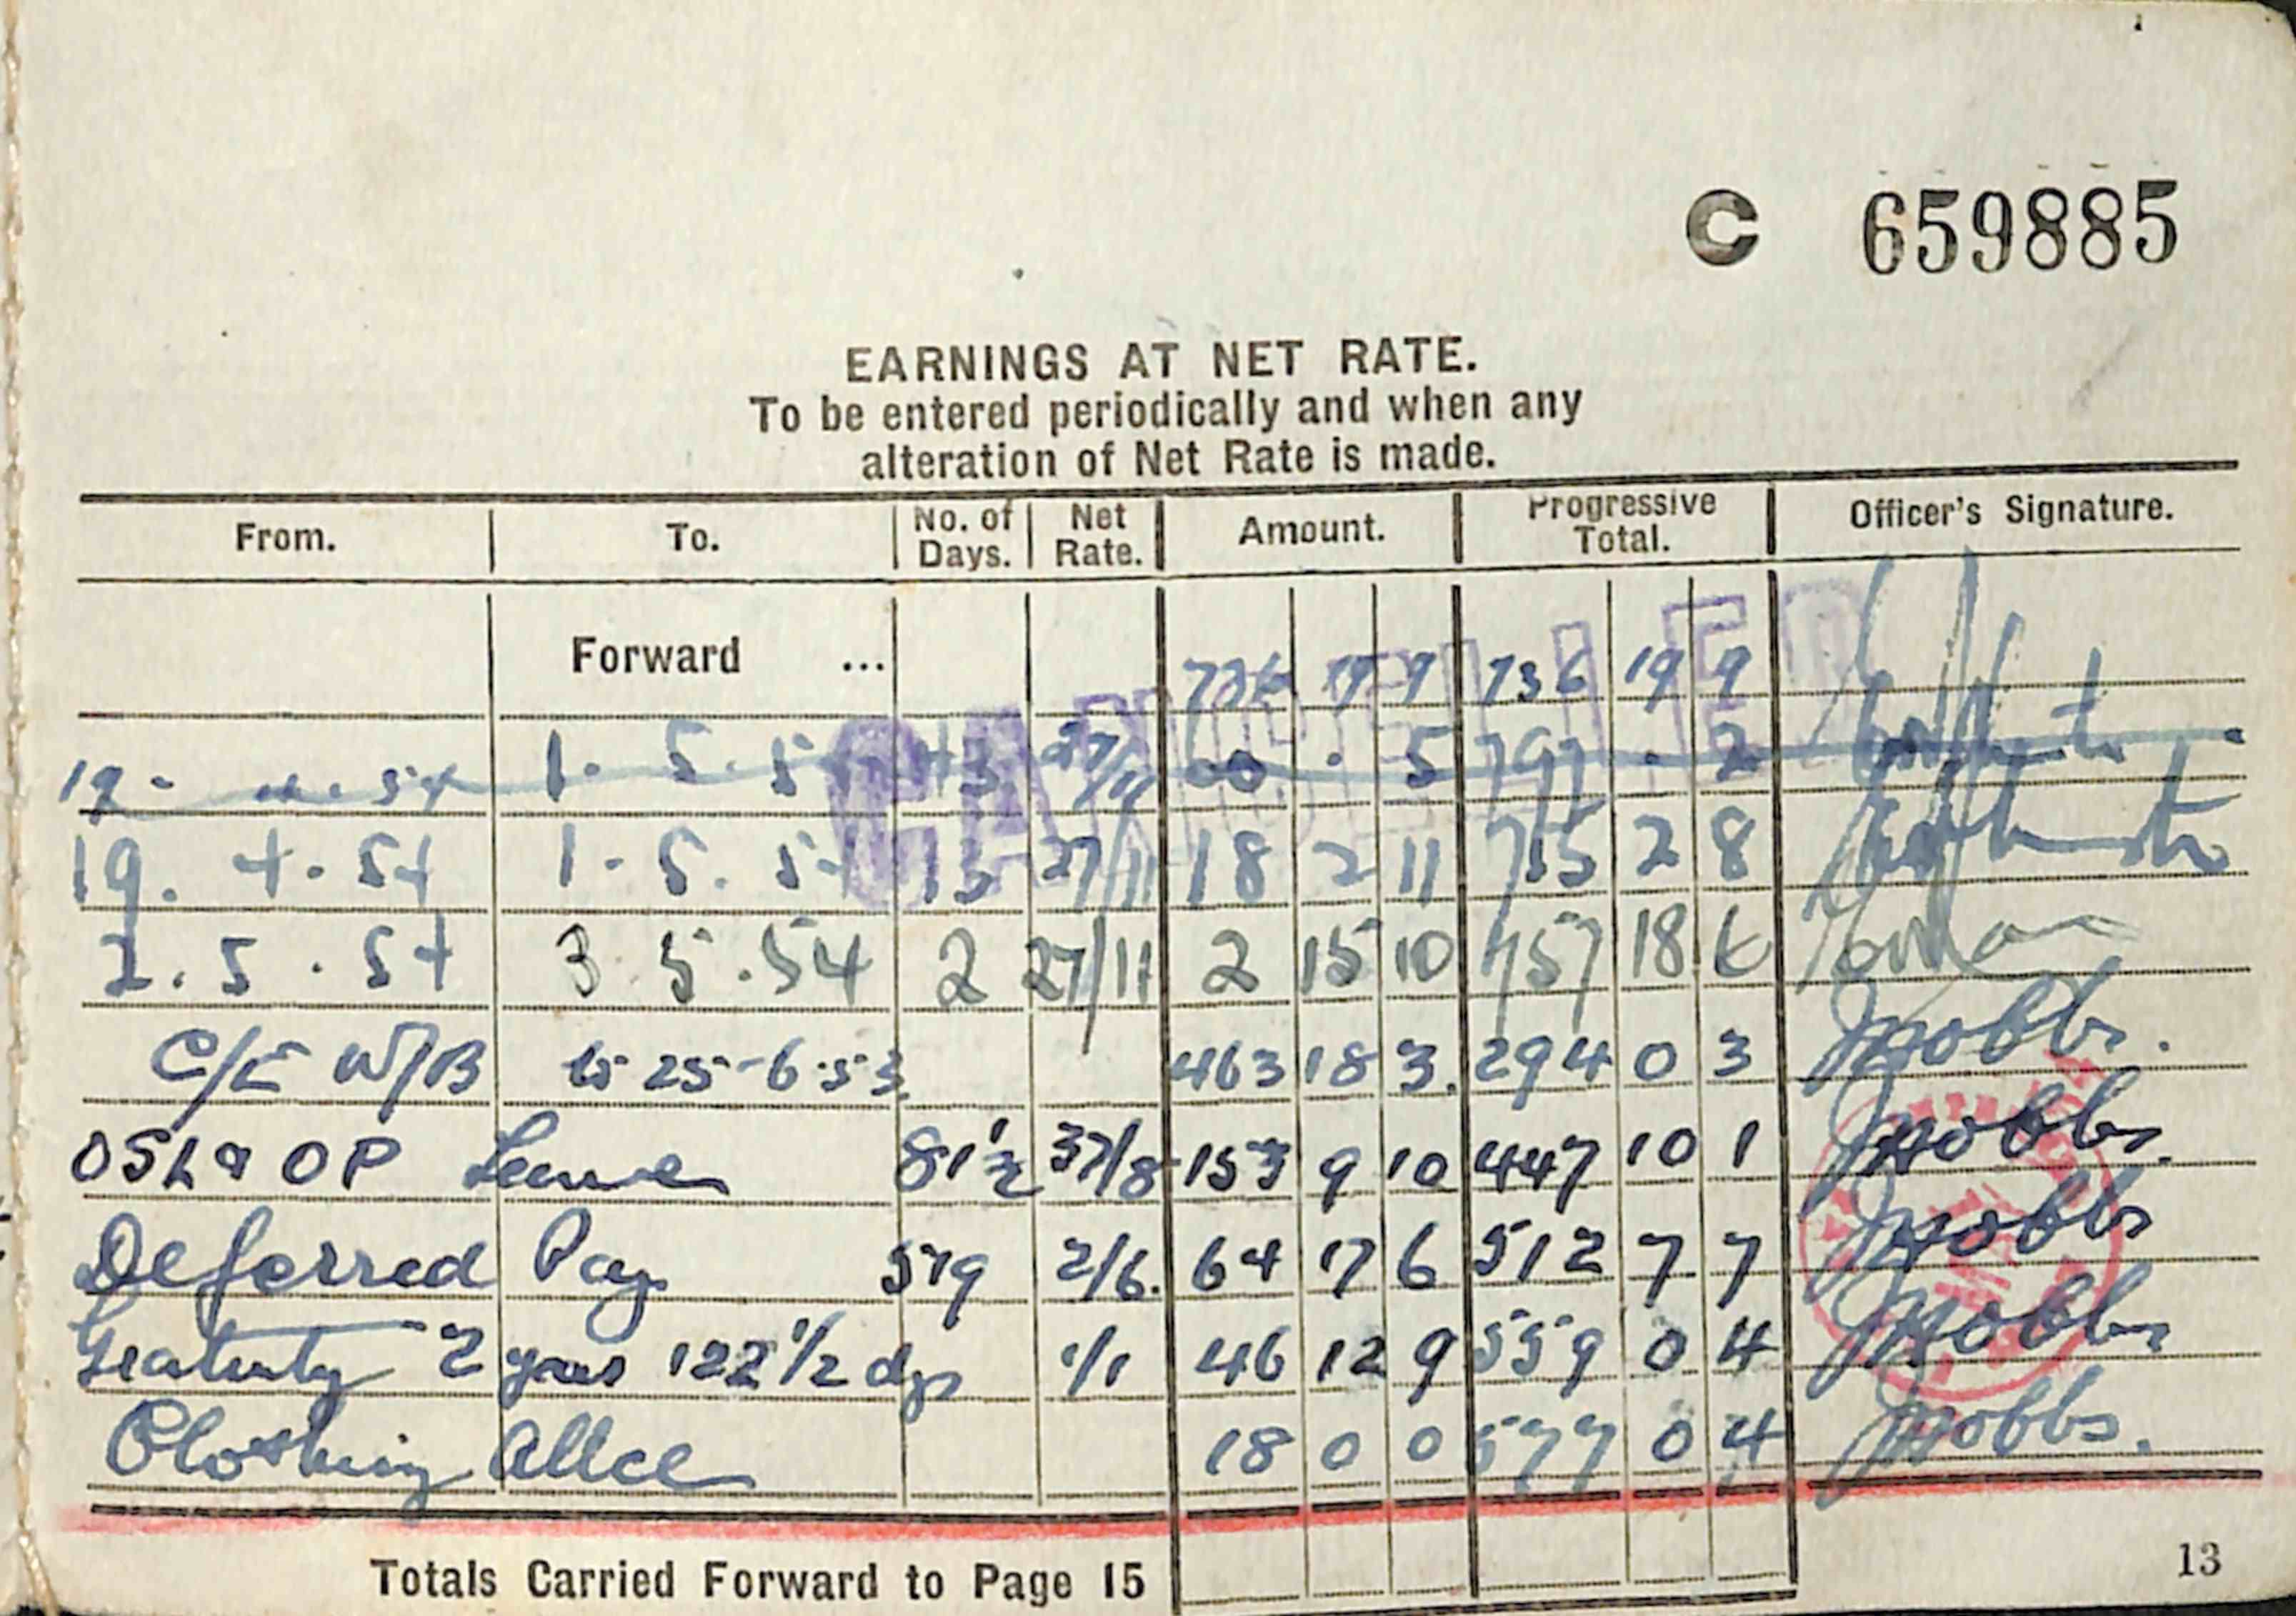 C 659885
EARNINGS AT NET RATE.
To be entered periodically and when any
alteration of Net Rate is made.
From. To. No. of Days. Net Rate. Amount. Progressive Total. Officer's Signature.
CANCELLED
Forward ... 736 19 9 736 19 9
19 - 54 1 . 5 . 5 43 27/11 60 . 5 797 . 2
19 . 4 . 54 1 . 5 . 54 13 27/11 18 2 11 755 2 8
2 . 5 . 54 3 5 . 54 2 27/11 2 15 10 757 18 6
C/E W/B to 25-6-53 463 18 3. 294 0 3 Mobbs.
OSL & OP Leave 81½ 37/8 153 9 10 447 10 1 Mobbs.
Deferred Pay 519 2/6. 64 17 6 512 7 7 Mobbs
Gratuity 2 years 122 1/2 dys 1/1 46 12 9 559 0 4 Mobbs
Clothing Allce 18 0 0 577 0 4 Mobbs.
Totals Carried Forward to Page 15
13